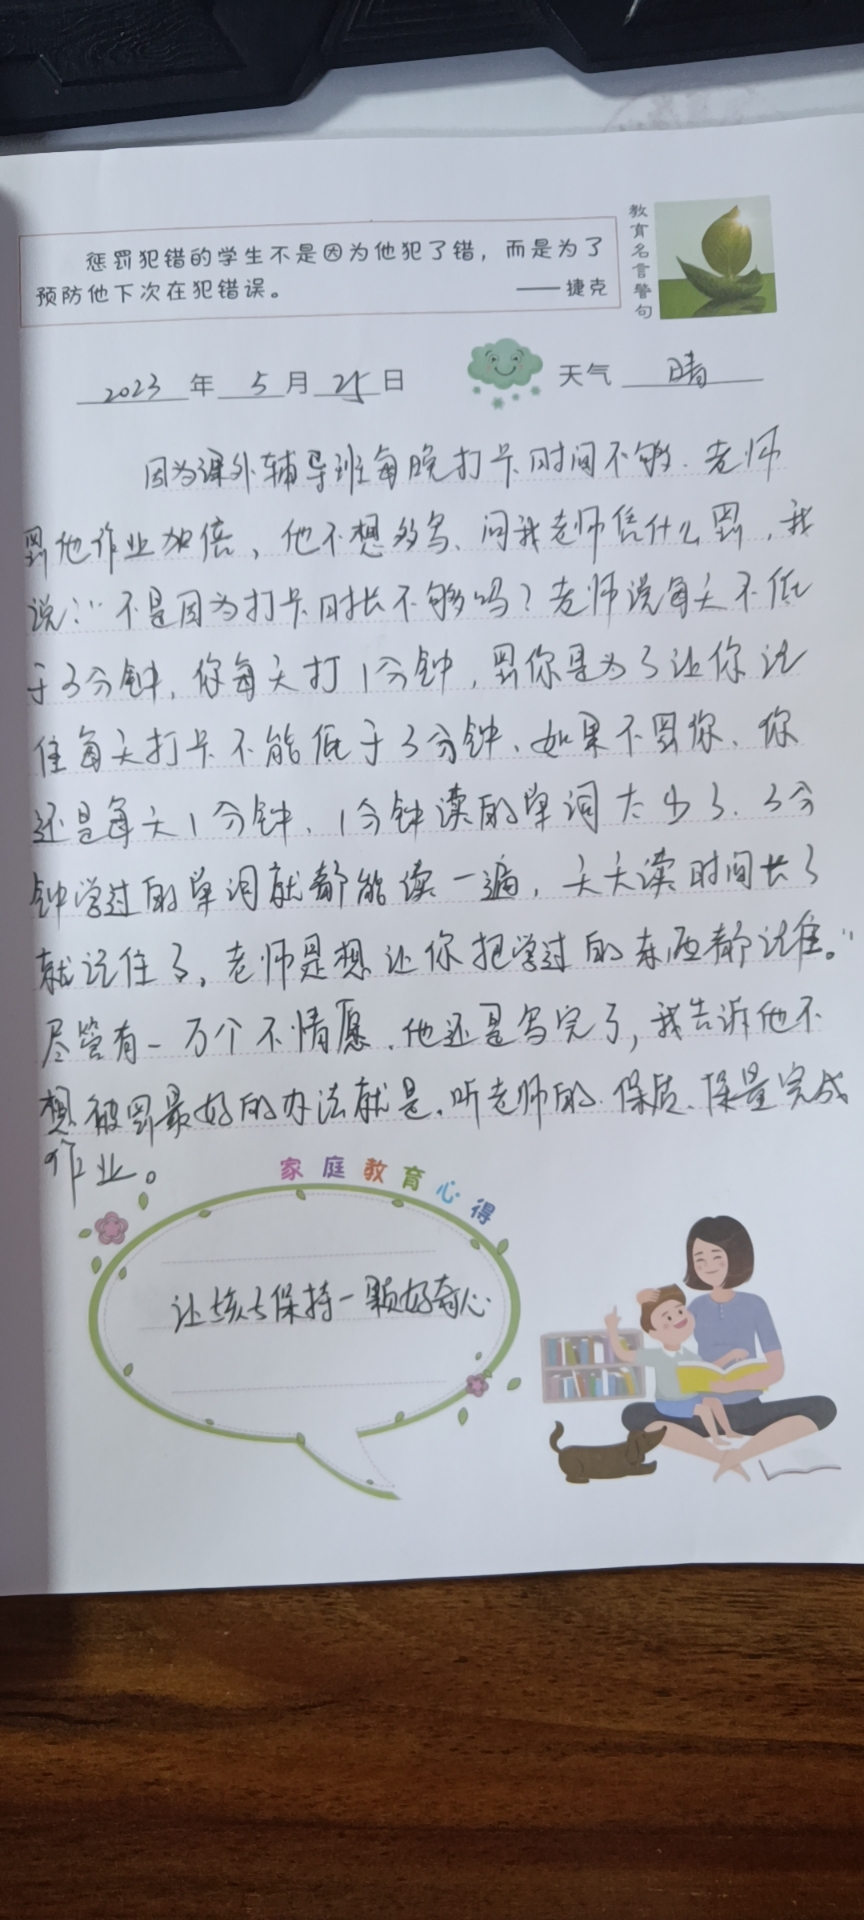 惩罚犯错的学生不是因为他犯了错，而是为了
预防他下次在犯错误。 ——捷克
教育名言警句
2023 年 5 月 25 日 天气 晴
因为课外辅导班每晚打卡时间不够、老师
罚他作业加倍，他不想多写、问我老师凭什么罚，我
说：“不是因为打卡时长不够吗？老师说每天不低
于3分钟，你每天打1分钟，罚你是为了让你记
住每天打卡不能低于3分钟、如果不罚你、你
还是每天1分钟、1分钟读的单词太少了、3分
钟学过的单词就都能读一遍，天天读时间长了
就记住了，老师是想让你把学过的东西都记住。”
尽管有一万个不情愿、他还是写完了，我告诉他不
想被罚最好的办法就是、听老师的、保质、保量完成
作业。
家庭教育心得
让孩子保持一颗好奇心